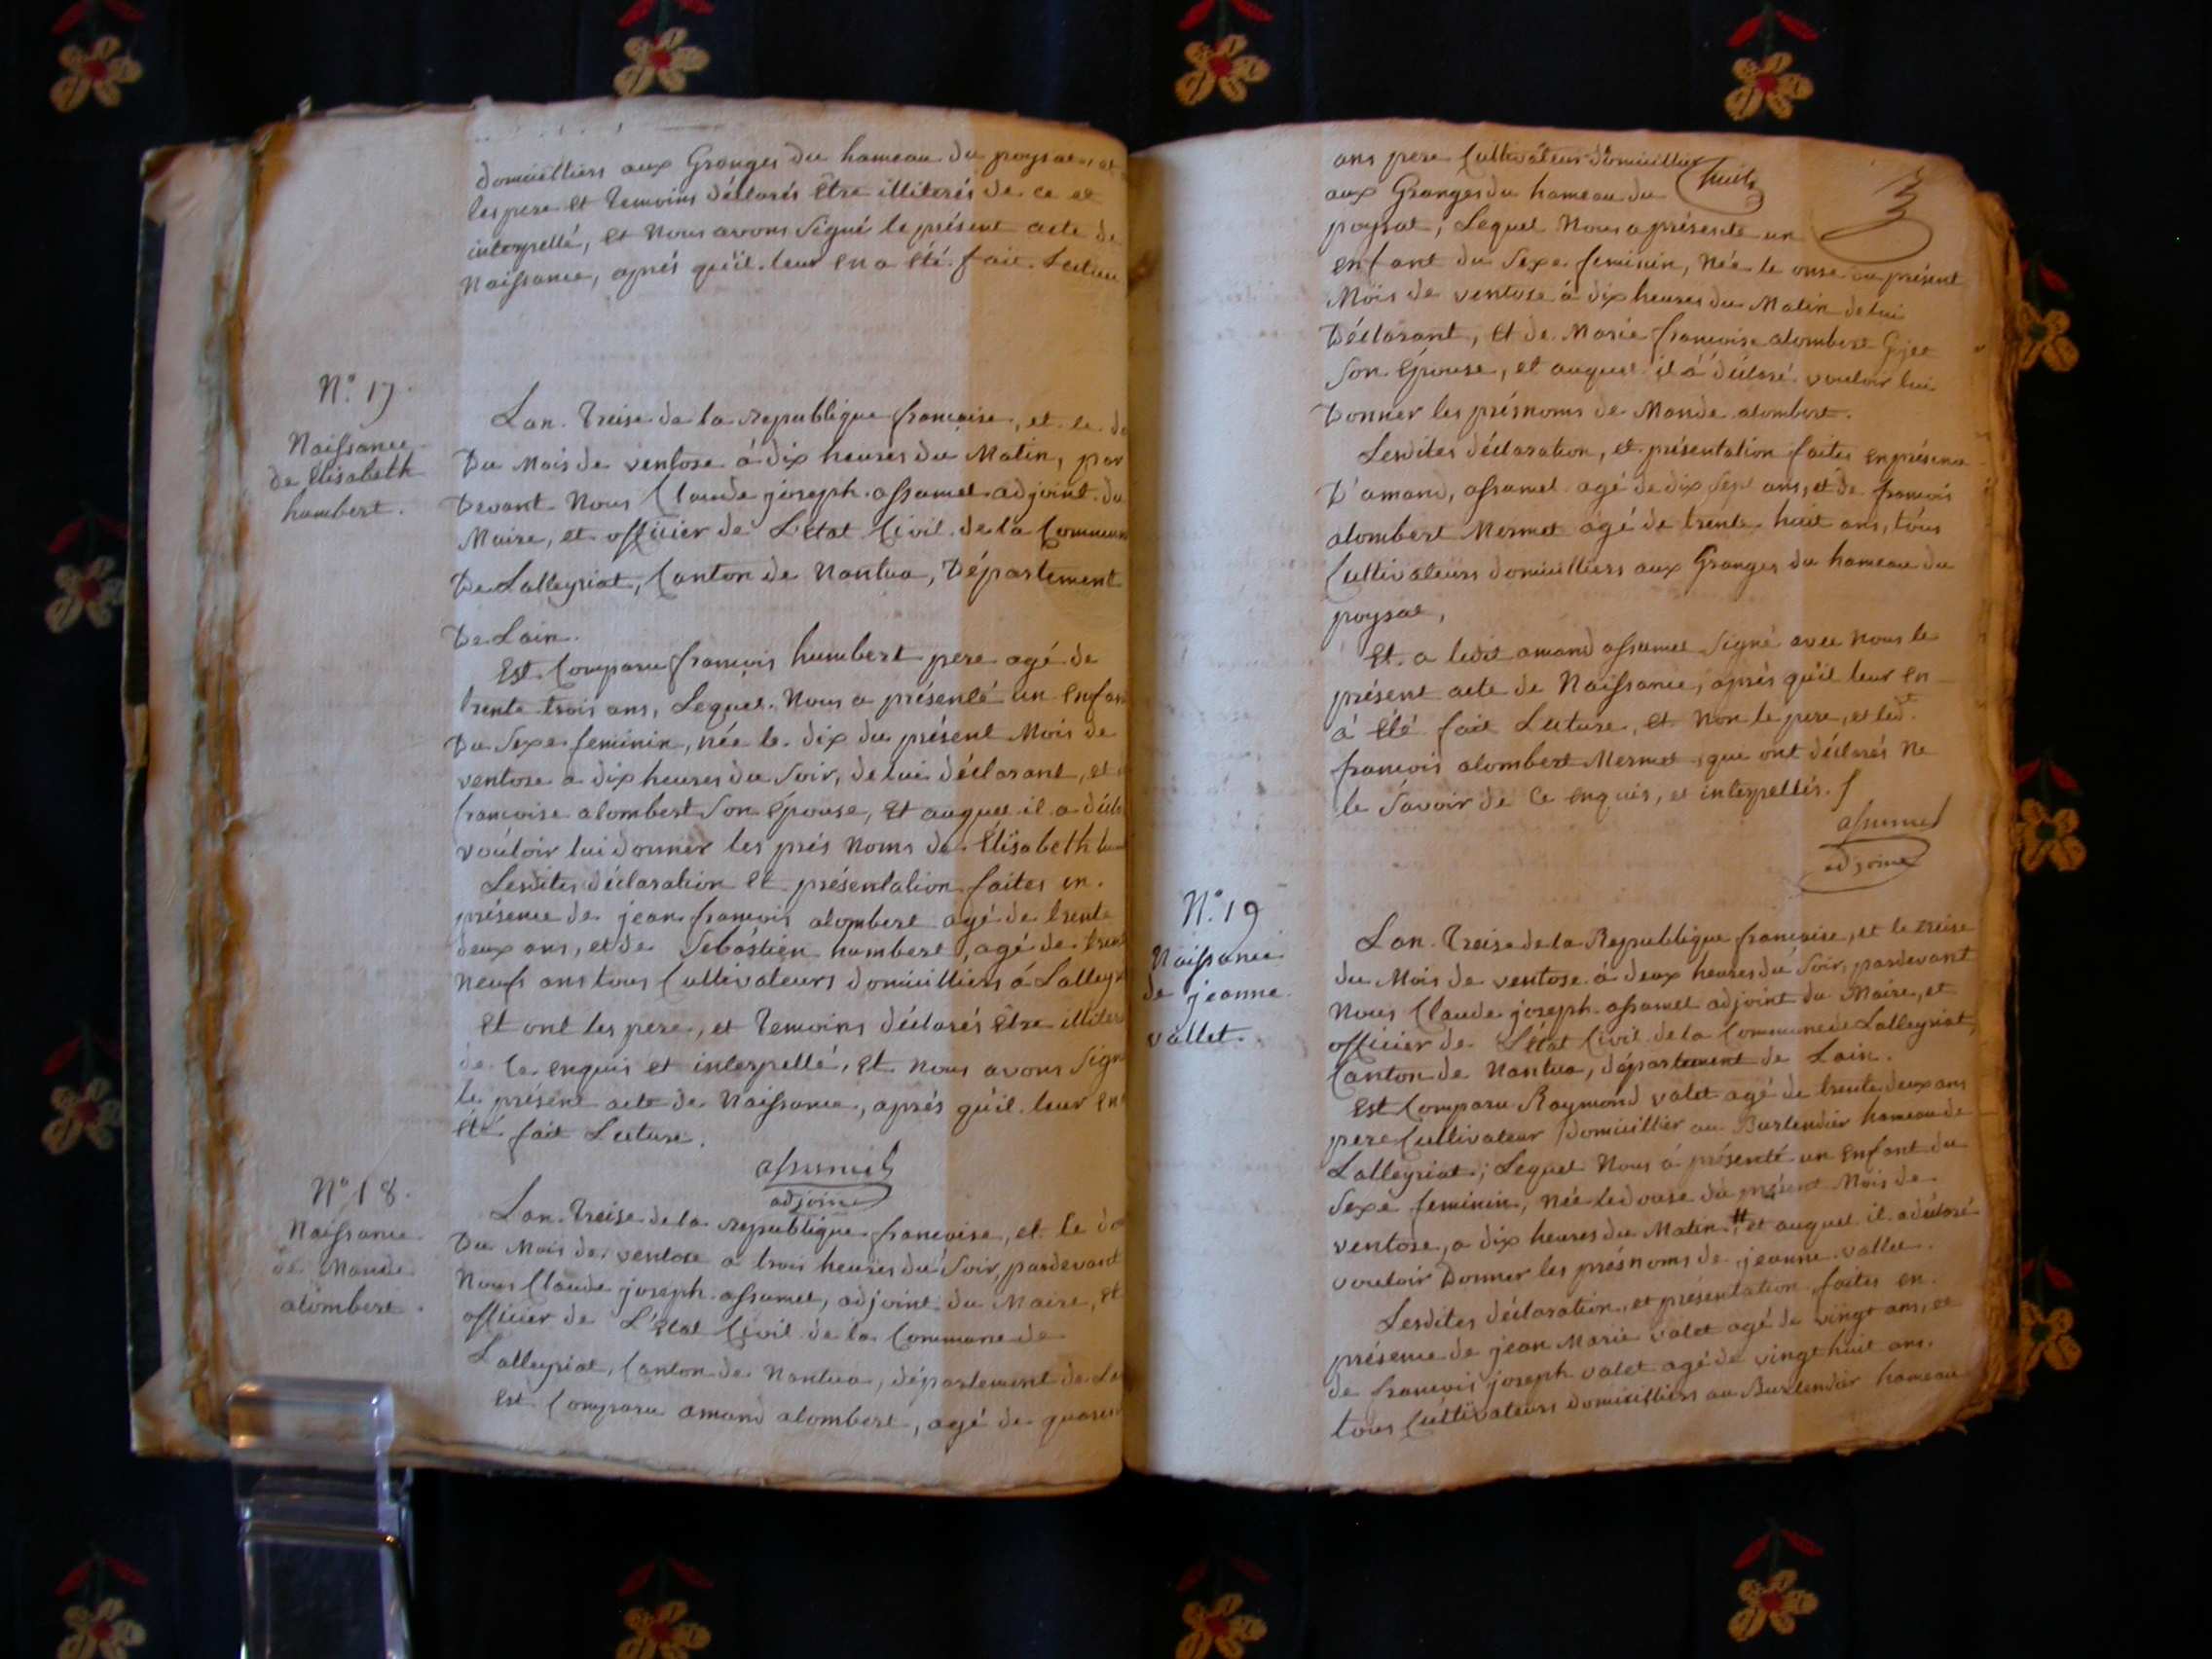 domicilliers aux Granges du hameau du poysat, et
les pere et temoins déclarés être illiterés de ce et
interpellé, et Nous avons signé le présent acte de
Naissance, après qu'il leur en a été fait Lecture
N.° 17.
Naissance
de Elisabeth
humbert.
Lan Treise de la republique francaise, et le
Du Mois de ventose à dix heures du Matin, par
Devant Nous Claude joseph assumel adjoint du
Maire, et officier de L'état Civil de la Commune
De Lalleyriat, Canton de Nantua, Département
De Lain.
Est Comparu francois humbert pere agé de
trente trois ans, Lequel Nous a présenté un Enfan
Du Sexe feminin, née le dix du présent Mois de
ventose a dix heures du Soir, de lui déclarant, et
francoise alombert Son épouse, Et auquel il a décla
vouloir lui donner les prés Noms de Elisabeth
Lesdites déclaration Et présentation faites en
présence de jean francois alombert agé de trente
deux ans, et de Sebastien humbert, agé de trent
Neufs ans tous Cultivateurs domicilliers á Lalleyr
Et ont les pere, et Temoins déclarés Etre illiter
de Ce enquis et interpellé, Et Nous avons Sign
le présent acte de Naissance, aprés qu'il leur en
Eté fait Lecture.
assumel
adjoint
N.° 18.
Naissance
de Mande
alombert.
Lan Treise de la republique francoise, et le do
Du Mois de ventose a trois heures du Soir, pardevant
Nous Claude joseph assumel, adjoint du Maire, Et
officier de L'Etat Civil de la Commune de
Lalleyriat, Canton de Nantua, département de
Est Comparu amand alombert, agé de quaren
ans pere Cultivateur domicillier
aux Granges du hameau du
poysat, Lequel Nous a présenté un
enfant du Sexe feminin, Née le onse du présent
Mois de ventose à dix heures du Matin de lui
Déclarant, Et de Marie francoise alombert Gojet
Son Épouse, et auquel il a déclaré vouloir lui
Donner les présnoms de Mande alombert.
huit
3
Lesdites déclaration, et présentation faites en présence
D'amand, assumel agé de dix Sept ans, et de francois
alombert Mermet agé de trente huit ans, tous
Cultivateurs domicilliers aux Granges du hameau du
poysat,
Et a ledit amand assumel Signé avec Nous le
présent acte de Naissance, aprés qu'il leur en
á Eté fait Lecture, et Non le pere, et ledt.
francois alombert Mermet, que ont déclarés Ne
le Savoir de Ce enquis, et interpellés.
assumel
adjoint
N.° 19
Naissance
de jeanne
vallet.
Lan Treise de la Republique francaise, et le treise
du Mois de ventose à deux heures du Soir, pardevant
Nous Claude joseph assumel adjoint du Maire, et
officier de L'état Civil de la Commune de Lalleyriat,
Canton de Nantua, département de Lain.
Est Comparu Raymond valet agé de trente deux ans
pere Cultivateur domicillier au Burlendier hameau de
Lalleyriat; Lequel Nous á présenté un Enfant du
Sexe feminin, Née le douse du présent Mois de
ventose, a dix heures du Matin # et auquel il a déclaré
vouloir Donner les présnoms de jeanne vallet.
Lesdites déclaration, et présentation faites en
présence de jean Marie valet agé de vingt ans, et
de francois joseph valet agé de vingt huit ans.
tous Cultivateurs domicilliers au Burlendier hameau